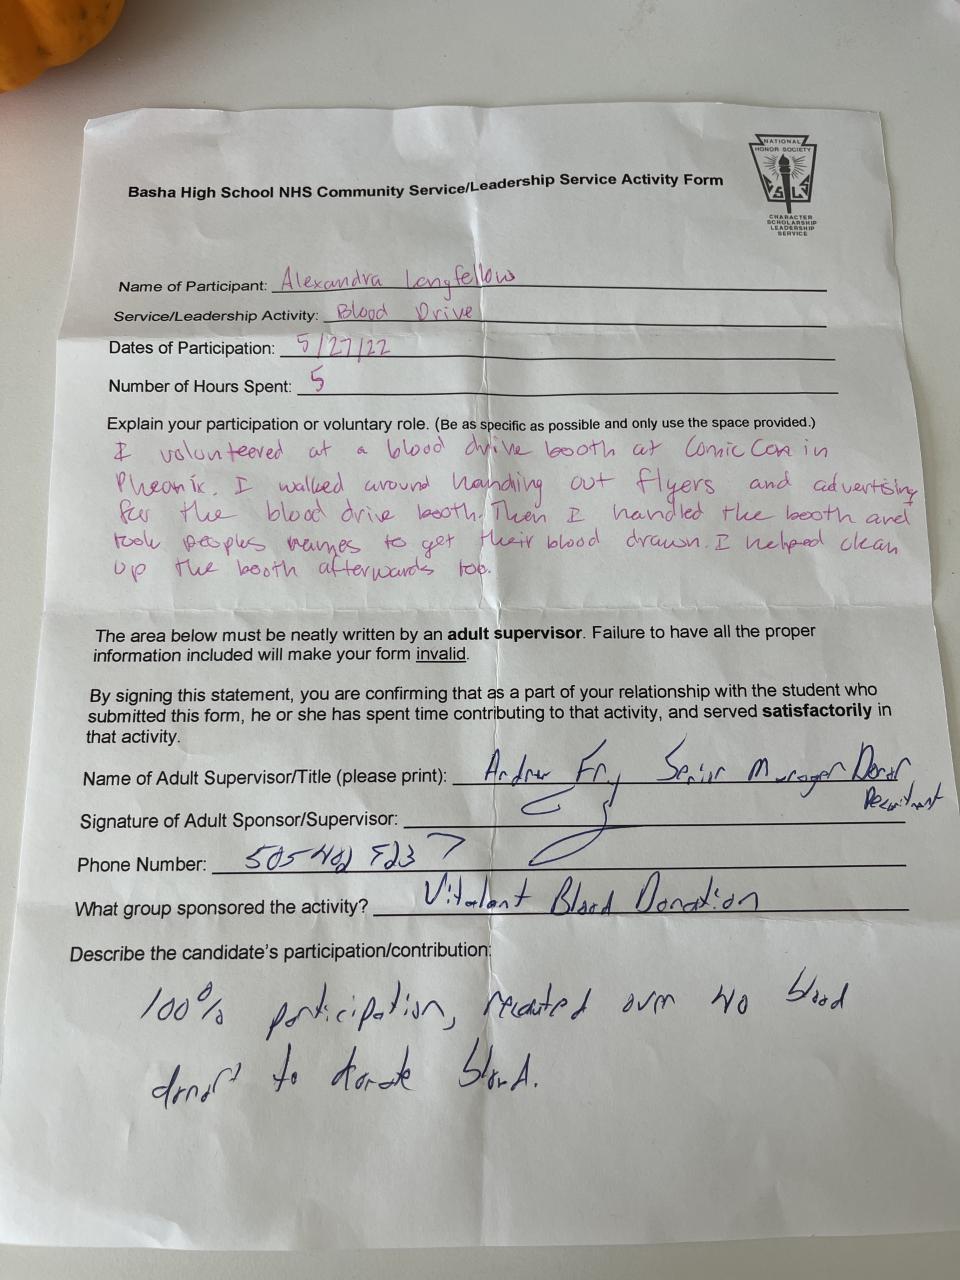 NATIONAL
HONOR SOCIETY
C S L S
CHARACTER
SCHOLARSHIP
LEADERSHIP
SERVICE
Basha High School NHS Community Service/Leadership Service Activity Form
Name of Participant: Alexandra Longfellow
Service/Leadership Activity: Blood Drive
Dates of Participation: 5/27/22
Number of Hours Spent: 5
Explain your participation or voluntary role. (Be as specific as possible and only use the space provided.)
I volunteered at a blood drive booth at Comic Con in
Pheonix. I walked around handing out flyers and advertising
for the blood drive booth. Then I handled the booth and
took peoples names to get their blood drawn. I helped clean
up the booth afterwards too.
The area below must be neatly written by an adult supervisor. Failure to have all the proper
information included will make your form invalid.
By signing this statement, you are confirming that as a part of your relationship with the student who
submitted this form, he or she has spent time contributing to that activity, and served satisfactorily in
that activity.
Name of Adult Supervisor/Title (please print): Andrew Fry Senior Manager Donor
Recruitment
Signature of Adult Sponsor/Supervisor:
Phone Number: 505
What group sponsored the activity? Vitalant Blood Donation
Describe the candidate's participation/contribution:
100% participation, recruited over 40 blood
donors to donate blood.